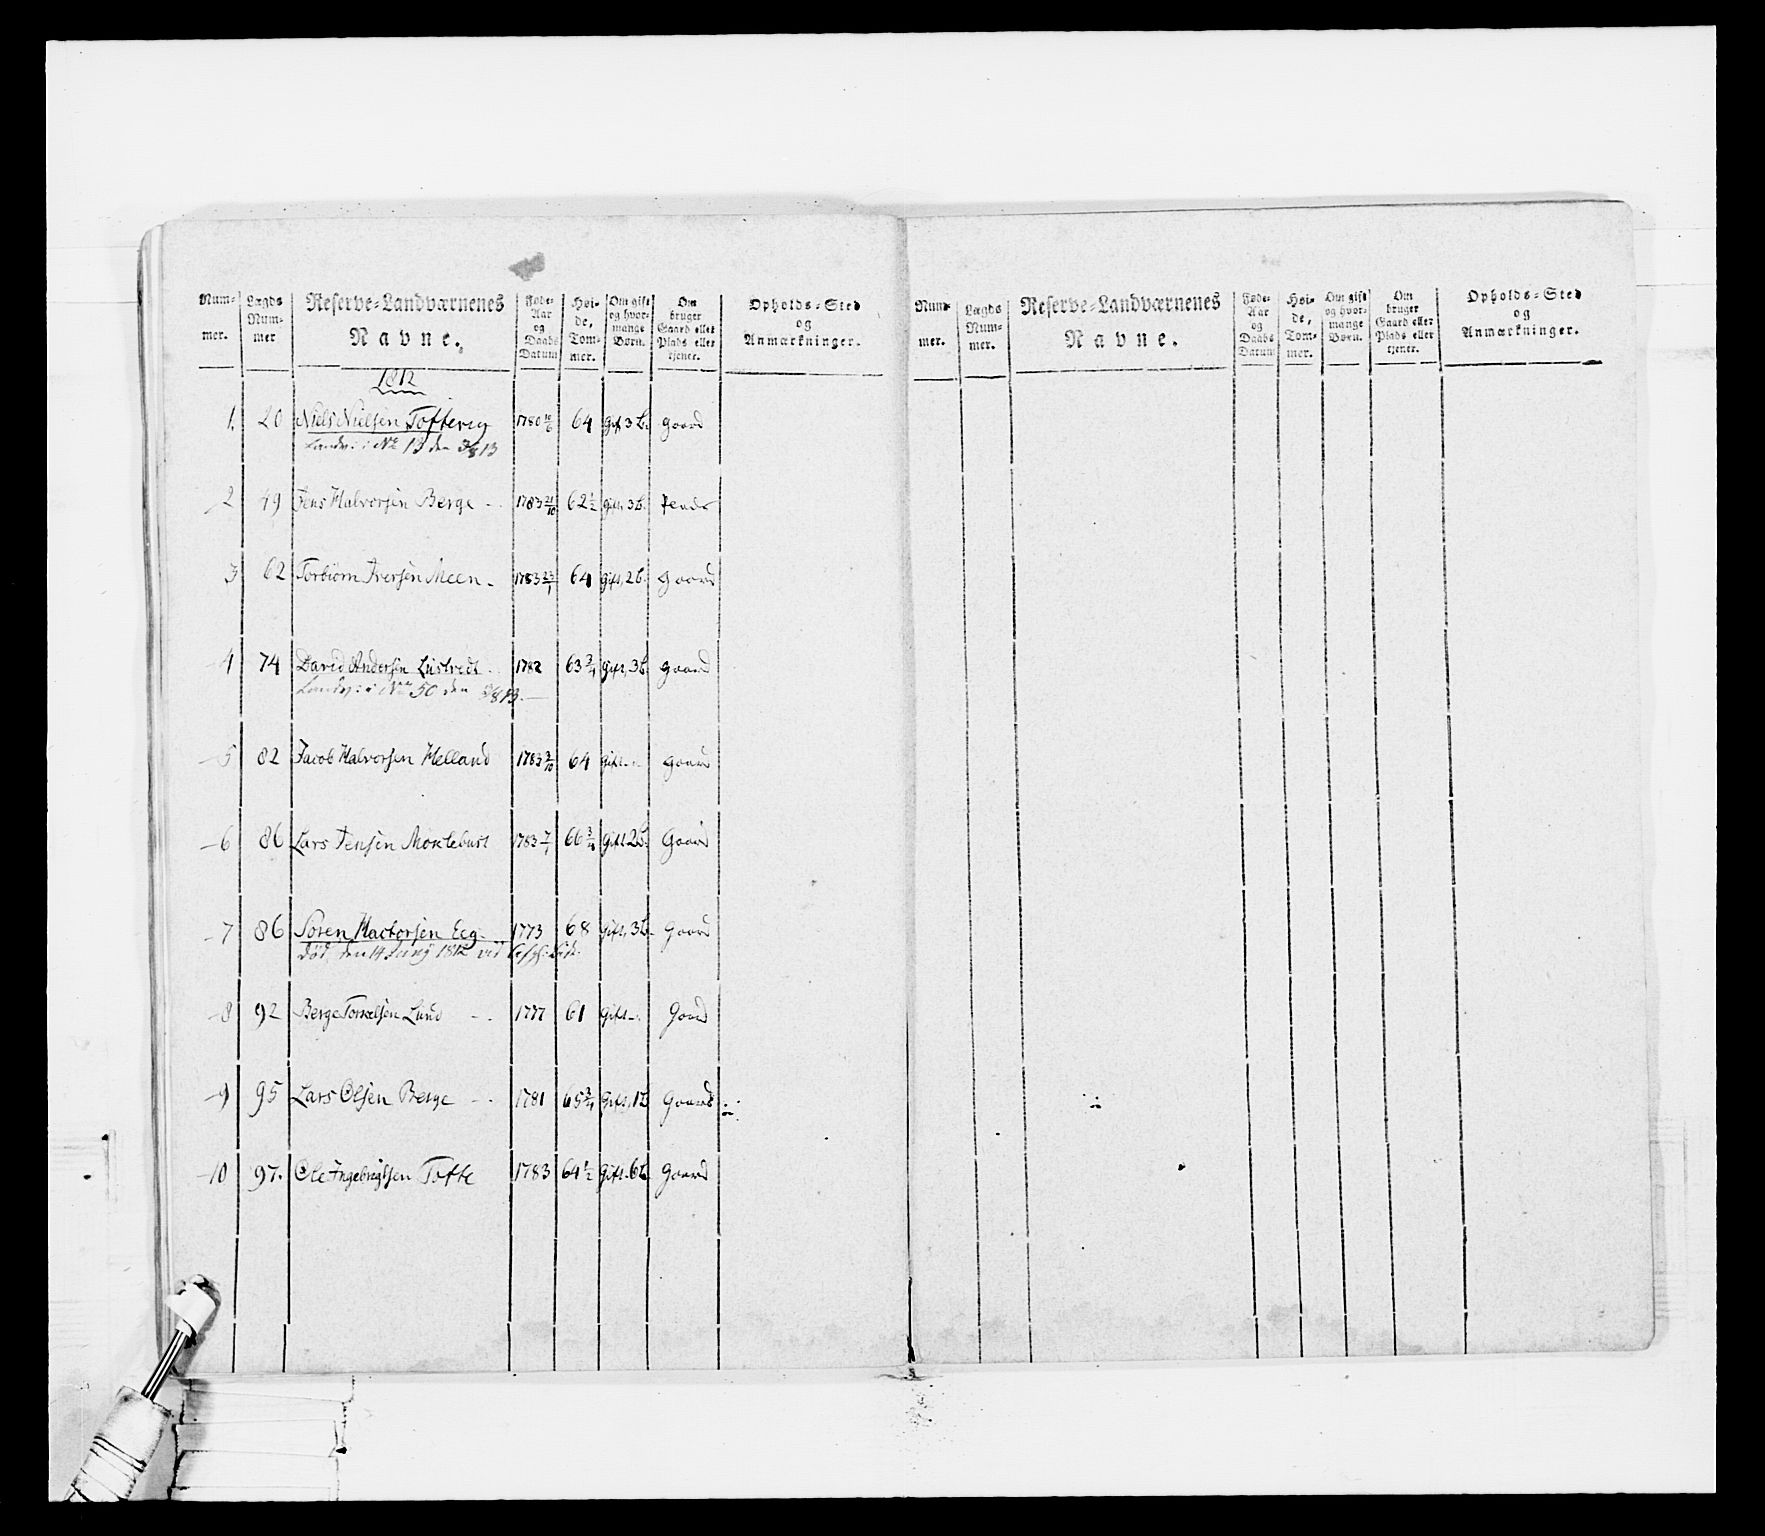 Num-
mer.
Lægds
Num-
mer
Reserve-Landværnenes
Navne.
Føde-
Aar
og
Daabs
Datum
Høi-
de,
Tom-
mer.
Om gift
og hvor-
mange
Børn.
Om
bruger
Gaard eller
Plads eller
tjener.
Opholds-Sted
og
Anmærkninger.
1812
1. 20 Niels Nielsen Tofteviig 1780 64 gift 3 b. gaard
Landv: i No 13 den 3/8 13
2 49 Jens Halvorsen Berge - - 1783 21/10 62 1/2 gift, 3 b.
3 62 Torbiørn Iversen Meen - 1783 23/1 64 gift, 2 b. gaard
4 74 David Andersen Lustvedt - 1782 63 3/4 gift, 3 b. gaard
Landv: i No 50 den 3/8 13. -
5 82 Jacob Halvorsen Helland 1783 3/10 64 gift - gaard
6 86 Lars Jensen Moxlebust 1783 7/1 66 3/4 gift 2 b. gaard
7 86 Søren Hactorsen Eeg - 1773 68 gift, 3 b. gaard
død den 14 Junÿ 1812 ved
8 92 Berge Torrelsen Lund - - 1777 61 gift - gaard
9 95 Lars Olsen Berge - - 1781 65 3/4 gift, 1 b gaard
10 97. Ole Ingebrigtsen Tofte 1783 64 1/2 gift. 6 b. gaard
Num-
mer.
Lægds
Num-
mer.
Reserve-Landværnenes
Navne.
Føde-
Aar
og
Daabs
Datum
Høi-
de,
Tom-
mer.
Om gift
og hvor-
mange
Børn.
Om
bruger
Gaard eller
Plads eller
tjener.
Opholds-Sted
og
Anmærkninger.